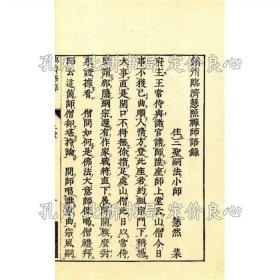 鎮州臨濟慧照禪師語錄
住三聖嗣法小師慧然集
府主王常侍與諸官請師陞座師上堂云山僧今日
事不獲已曲順人情方登此座若約祖宗門下稱揚
大事直是開口不得無你措足處山僧此日以常侍
堅請那隱綱宗還有作家戰將直下展陣開旗麼對
眾證據看僧問如何是佛法大意師便喝僧禮拜
師云這箇師僧却堪持論問師唱誰家曲宗風嗣